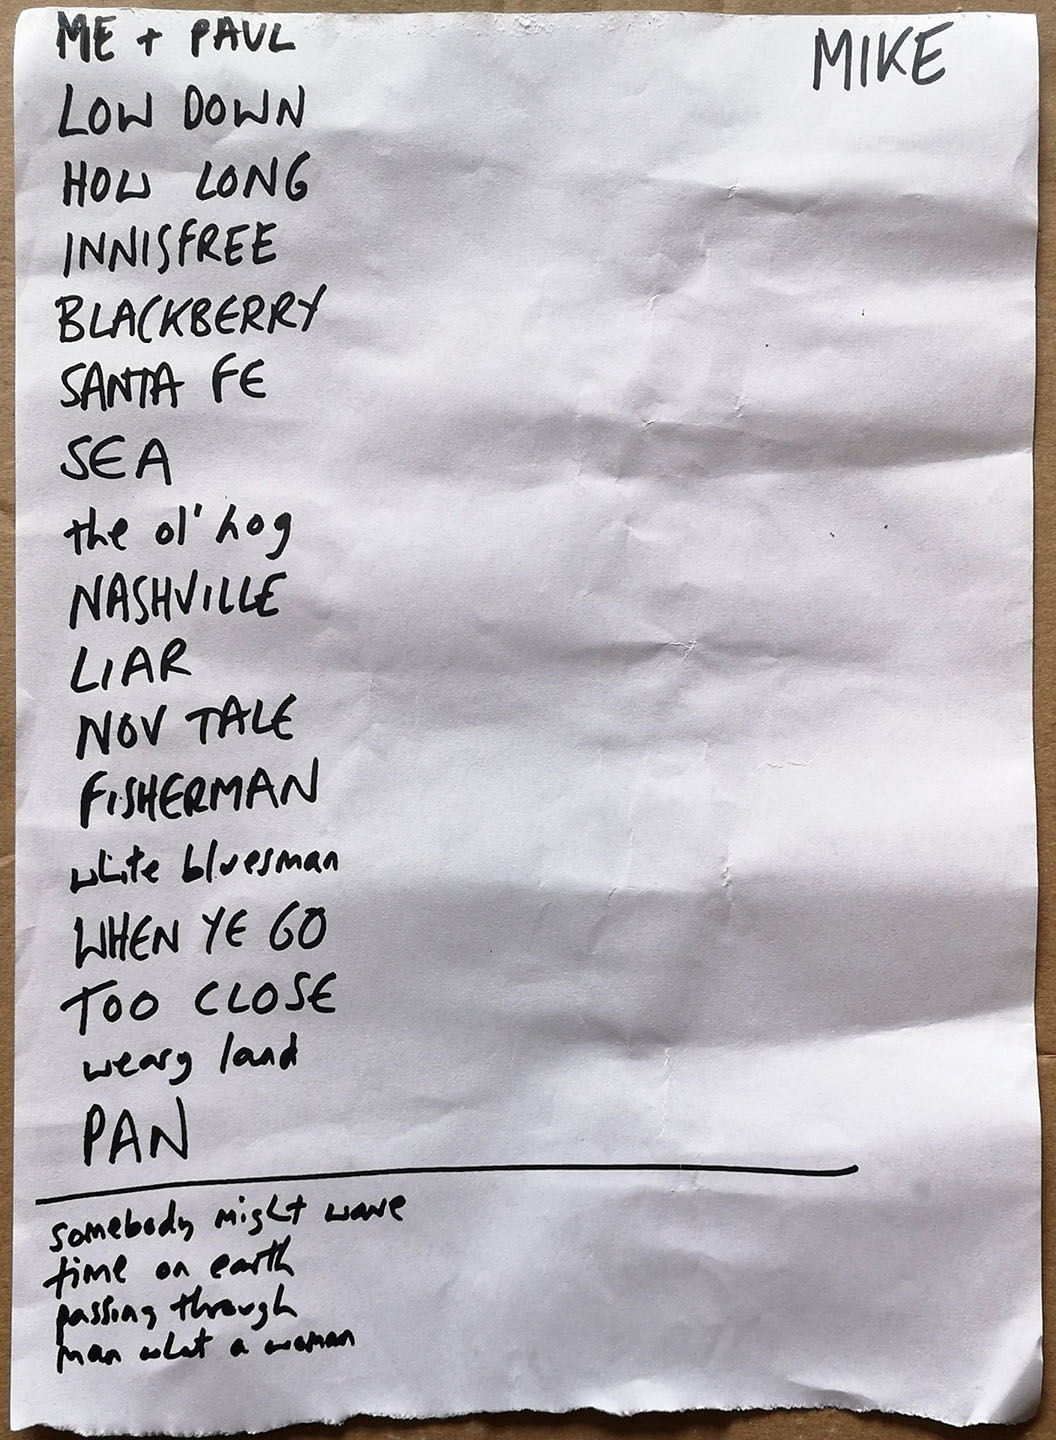 ME + PAUL
MIKE
LOW DOWN
HOW LONG
INNISFREE
BLACKBERRY
SANTA FE
SEA
the ol' hog
NASHVILLE
LIAR
NOV TALE
FISHERMAN
white bluesman
WHEN YE GO
TOO CLOSE
weary land
PAN
somebody might wave
time on earth
passing through
man what a woman